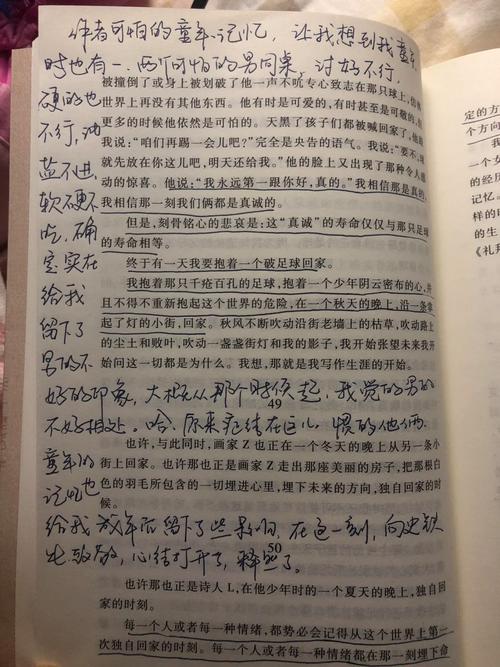 作者可怕的童年记忆，让我想到我童年
时也有一、两个可怕的男同桌，讨好不行，
硬的也
不行，油
盐不进，
软硬不
吃，确
实实在
给我
留下了
男的不
好的印象，大概从那个时候起，我觉的男的
不好相处。哈，原来症结在这儿
童年的
记忆也
给我成年后留下了些影响，在这一刻，向史铁
生致敬，心结打开了，释然了。
被撞倒了或身上被划破了他一声不吭专心致志在那只球上，仿佛
世界上再没有其他东西。他有时是可爱的，有时甚至是可敬的，但
更多的时候他依然是可怕的。天黑了孩子们都被喊回家了，他跟
我说：“咱们再踢一会儿吧？”完全是央告的语气。我说：“要不，球
就先放在你这儿吧，明天还给我。”他的脸上又出现了那种令人感
动的惊喜。他说：“我永远第一跟你好，真的。”我相信那是真的，
我相信那一刻我们俩都是真诚的。
但是，刻骨铭心的悲哀是：这“真诚”的寿命仅仅与那只足球
的寿命相等。
终于有一天我要抱着一个破足球回家。
我抱着那只千疮百孔的足球，抱着一个少年阴云密布的心，并
且不得不重新抱起这个世界的危险，在一个秋天的晚上，沿一条掌
起了灯的小街，回家。秋风不断吹动沿街老墙上的枯草，吹动路上
的尘土和败叶，吹动一盏盏街灯和我的影子，我开始张望未来我开
始问这一切都是为什么。我想，那就是我写作生涯的开始。
49
也许，与此同时，画家 Z 也正在一个冬天的晚上从另一条小
街上回家。也许那也正是画家 Z 走出那座美丽的房子，把那根白
色的羽毛所包含的一切埋进心里，埋下未来的方向，独自回家的时
候。
50
也许那也正是诗人 L，在他少年时的一个夏天的晚上，独自回
家的时刻。
每一个人或者每一种情绪，都势必会记得从这个世界上第一
次独自回家的时刻。每一个人或者每一种情绪都在那一刻埋下命
定的方
个方向
我
一个女
的经历
记忆。
样的
的生
《礼拜